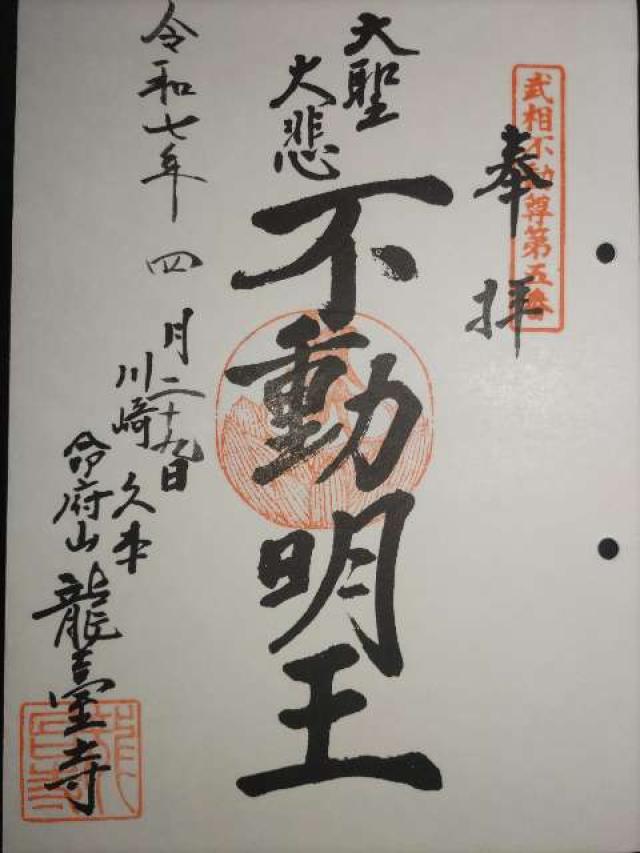 武相不動尊第五番
奉拝
大聖
大悲
不動明王
令和七年四月二十九日
川崎久本
命府山龍臺寺